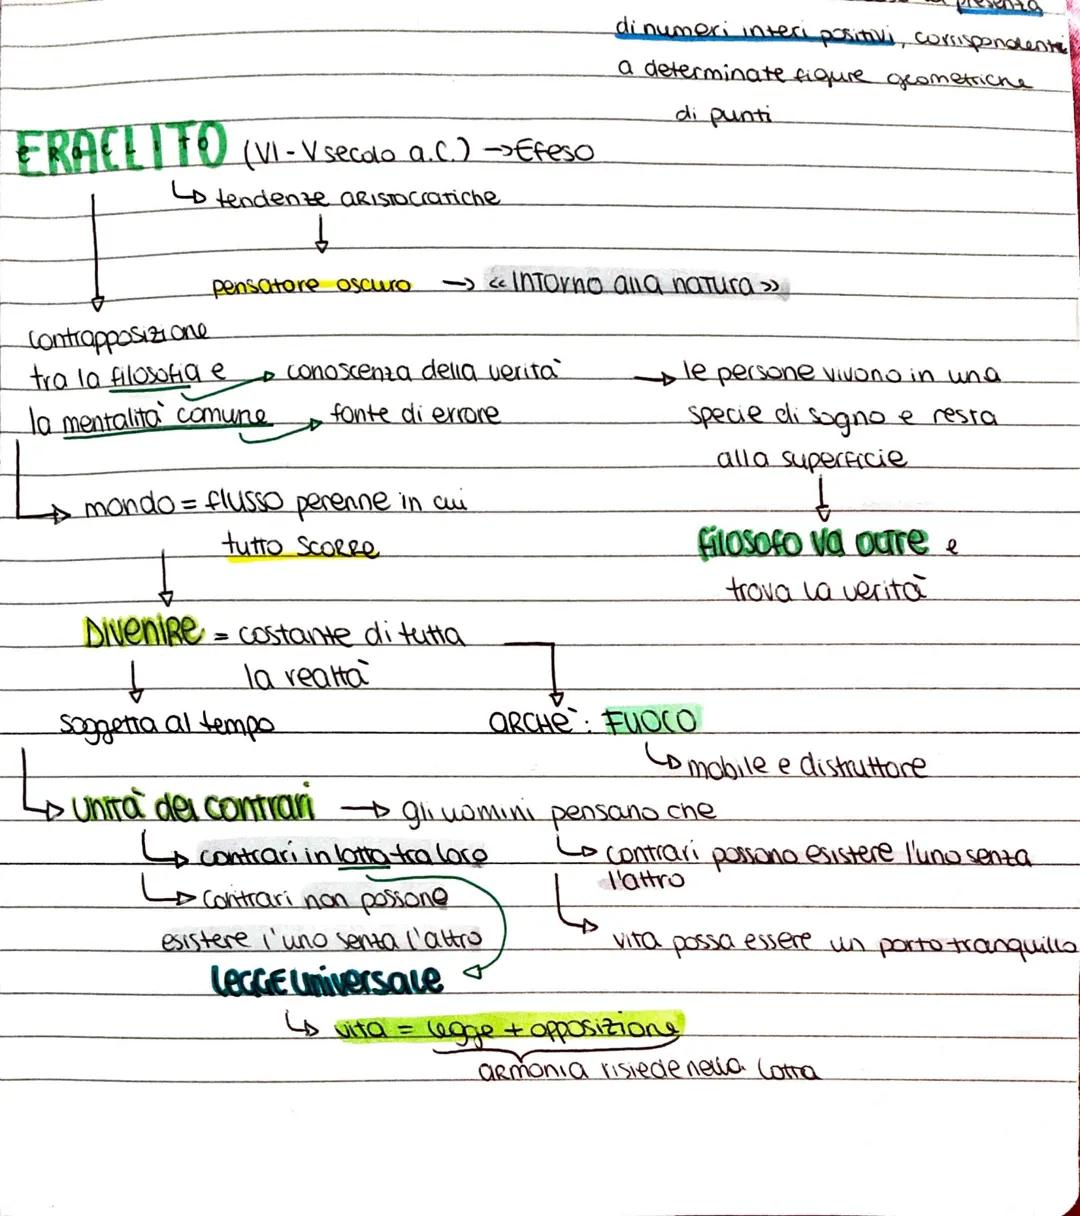 presenza
di numeri interi positivi, corrispondenti
a determinate figure geometriche
di punti
ERACLITO (VI - V secolo a.C.) → Efeso
↳ tendenze aristocratiche
pensatore oscuro → « Intorno alla natura »
contrapposizione
tra la filosofia e → conoscenza della verità → le persone vivono in una
la mentalità comune → fonte di errore specie di sogno e resta
alla superficie
→ mondo = flusso perenne in cui
tutto scorre filosofo va oltre e
trova la verità
Divenire = costante di tutta
la realtà
soggetta al tempo archè: FUOCO
↳ mobile e distruttore
→ unità dei contrari → gli uomini pensano che
↳ contrari in lotta tra loro ↳ contrari possono esistere l'uno senza
l'altro
↳ contrari non possono
esistere l'uno senza l'altro ↳ vita possa essere un porto tranquillo
legge universale
↳ vita = legge + opposizione
armonia risiede nella lotta